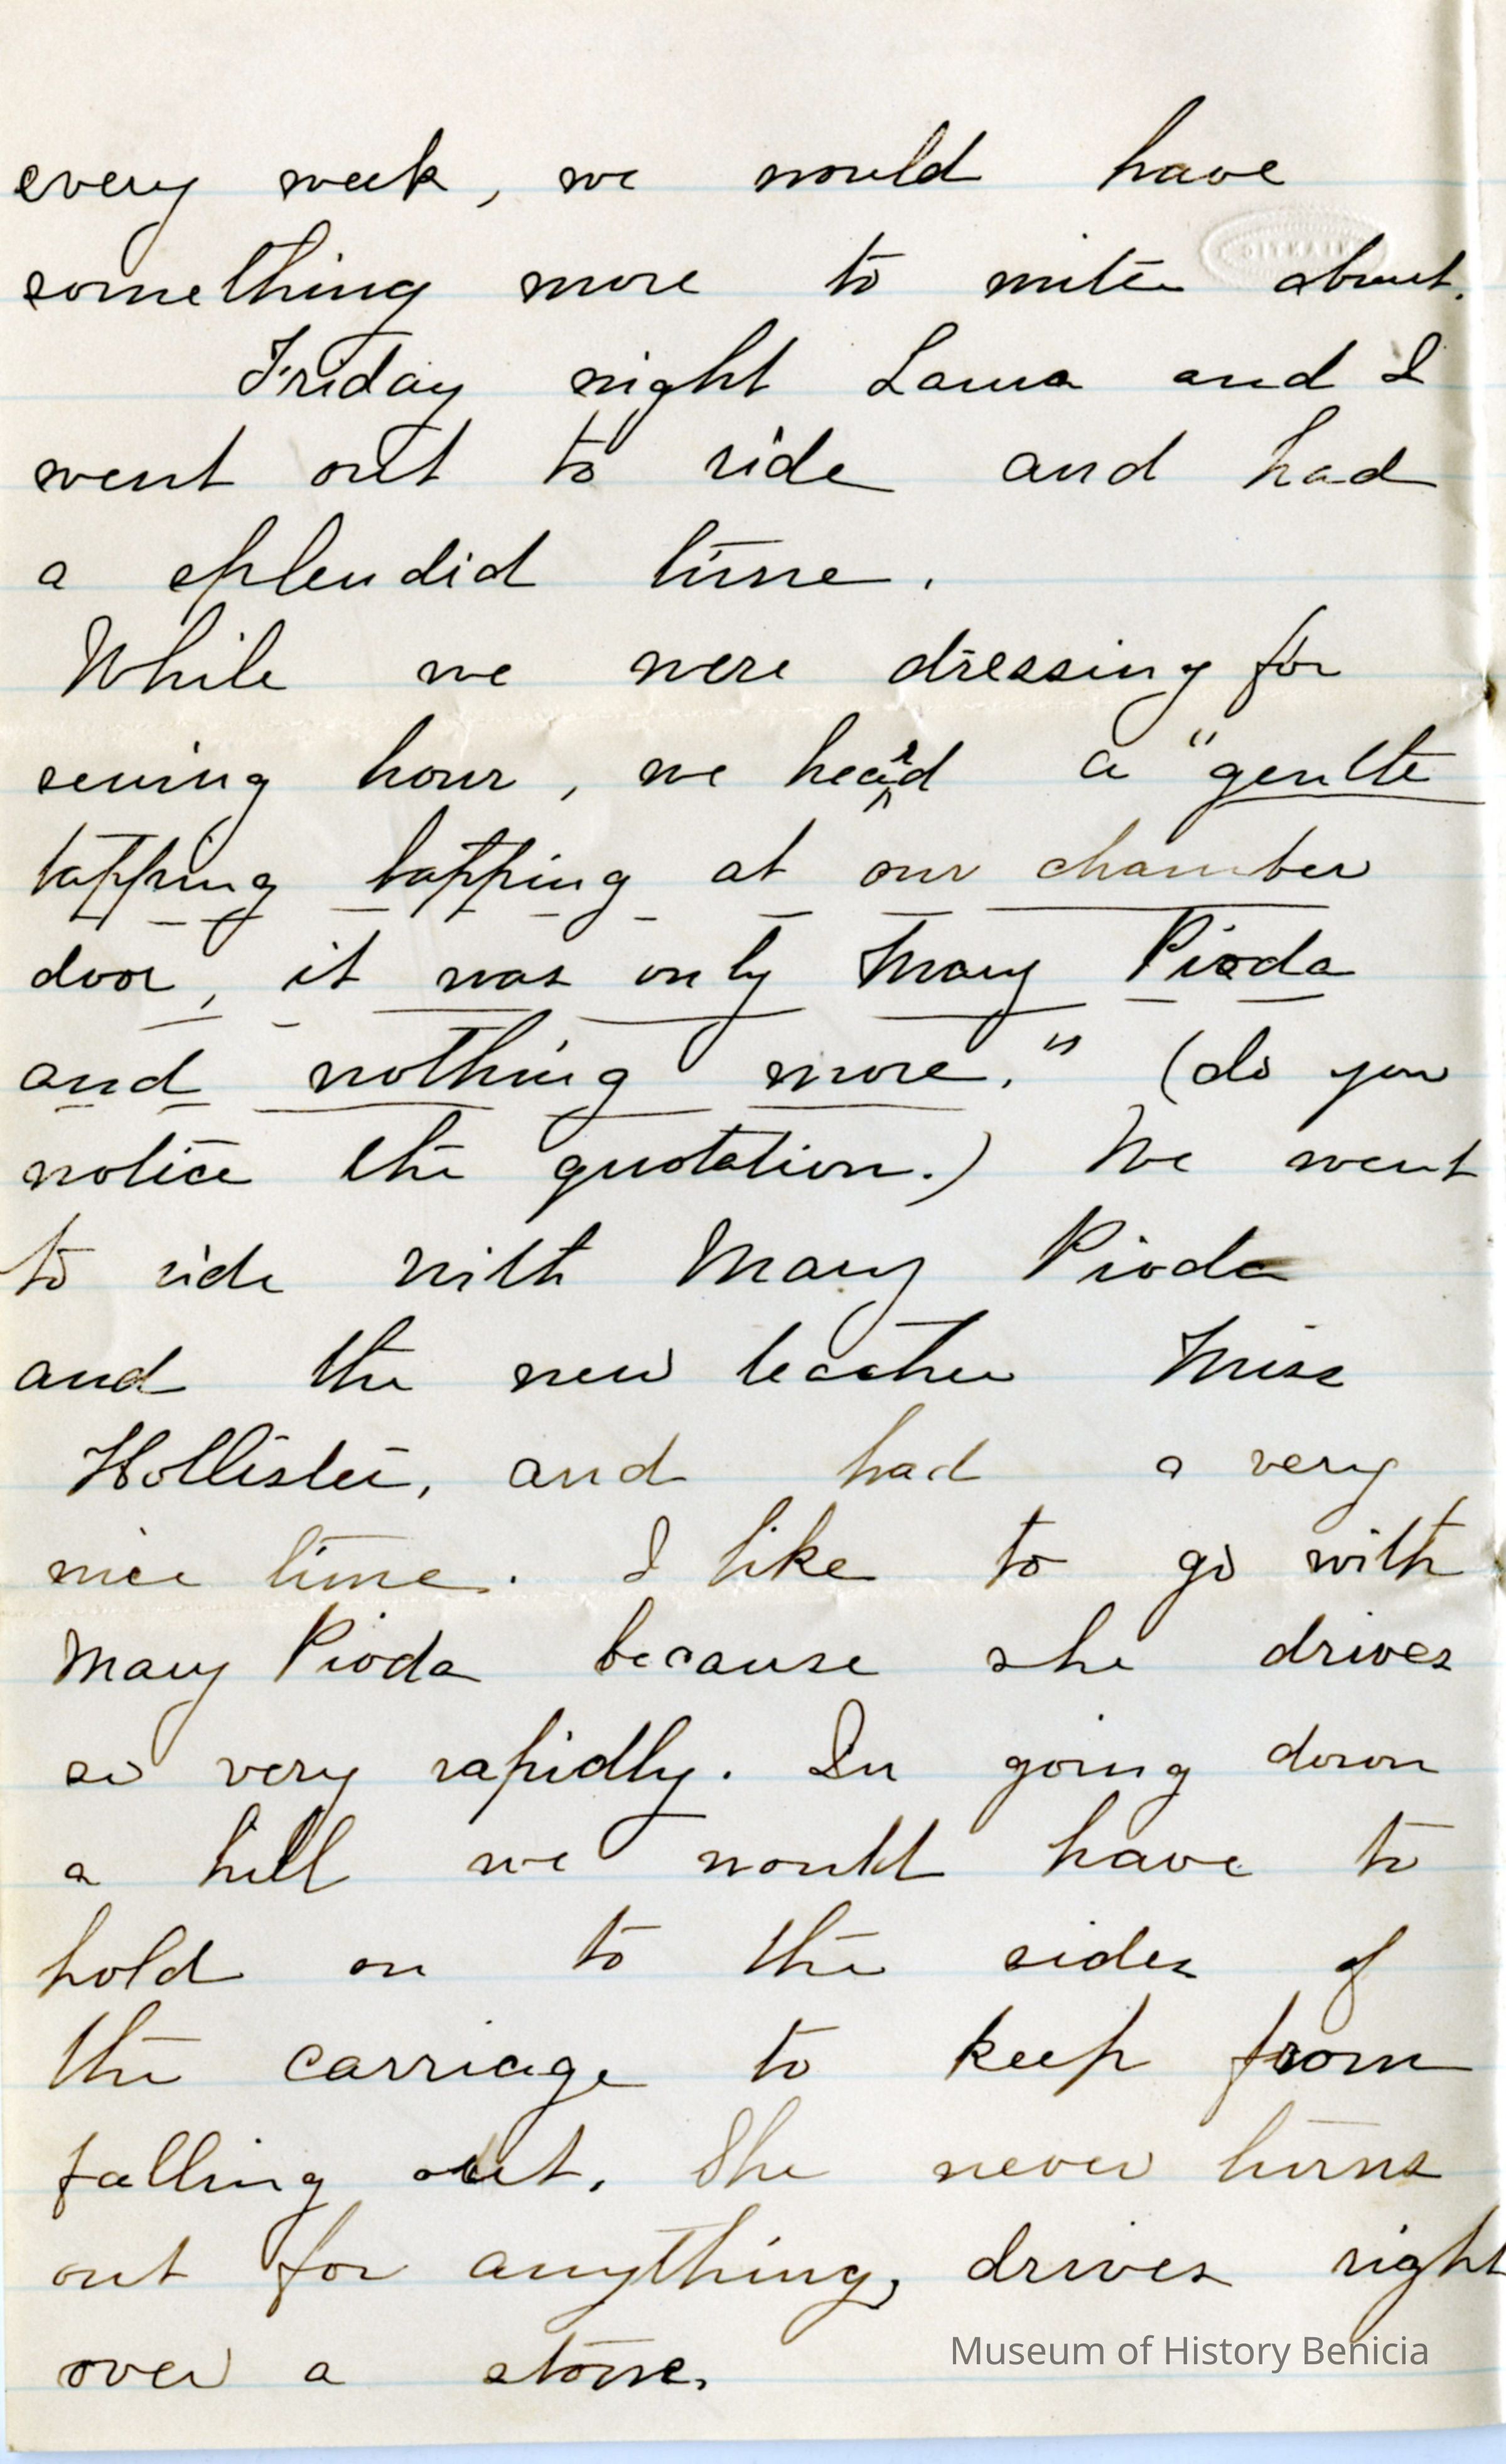 every week, we would have
something more to write about.
Friday night Laura and I
went out to ride and had
a splendid time.
While we were dressing for
sewing hour, we heard a "gentle
tapping tapping at our chamber
door, it was only Mary Pioda
and nothing more." (do you
notice the quotation.) We went
to ride with Mary Pioda
and the new teacher Miss
Hollister, and had a very
nice time. I like to go with
Mary Pioda because she drives
so very rapidly. In going down
a hill we would have to
hold on to the sides of
the carriage to keep from
falling out. She never turns
out for anything, drives right
over a stone.
Museum of History Benicia